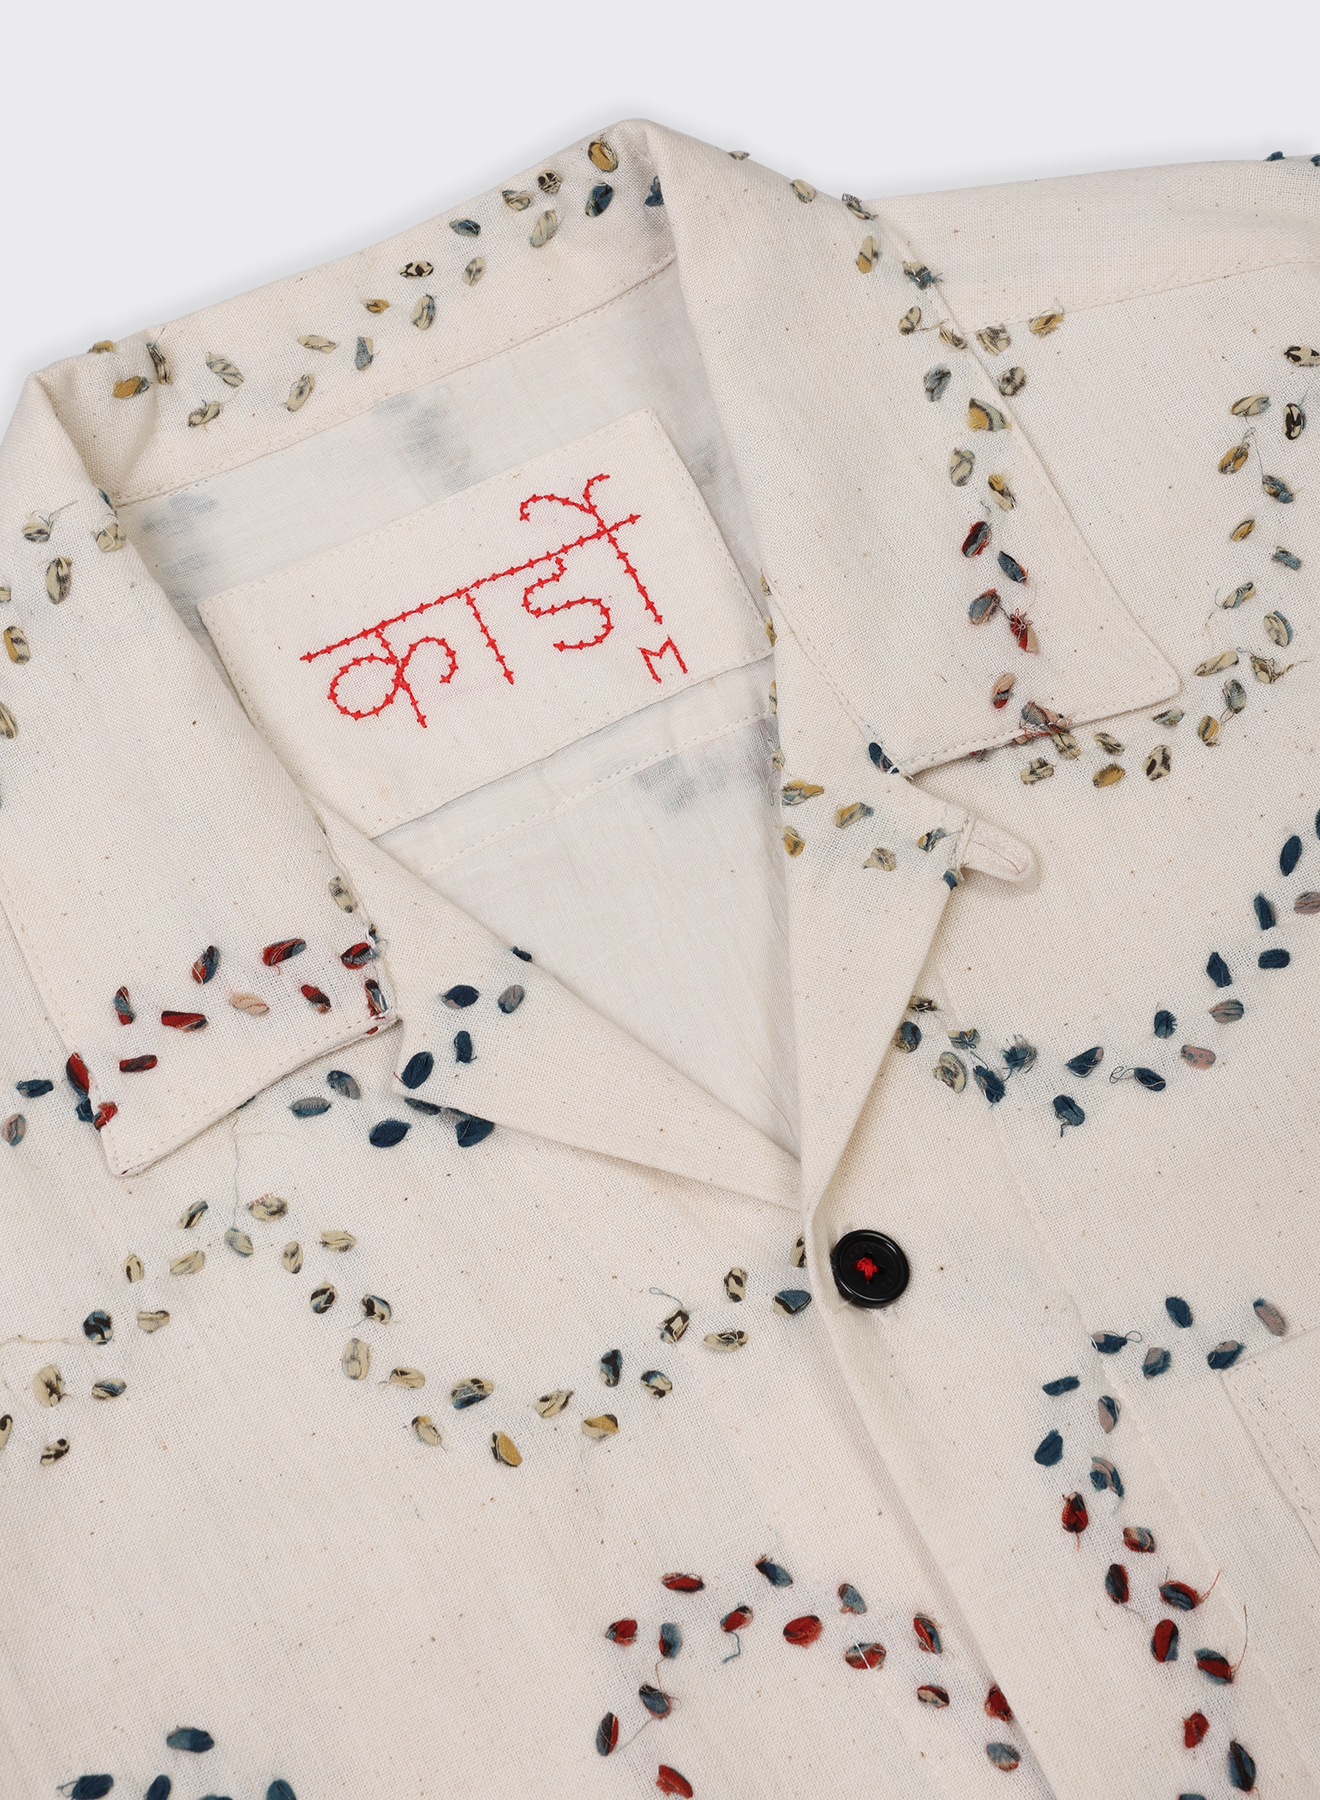 कार्डो
M